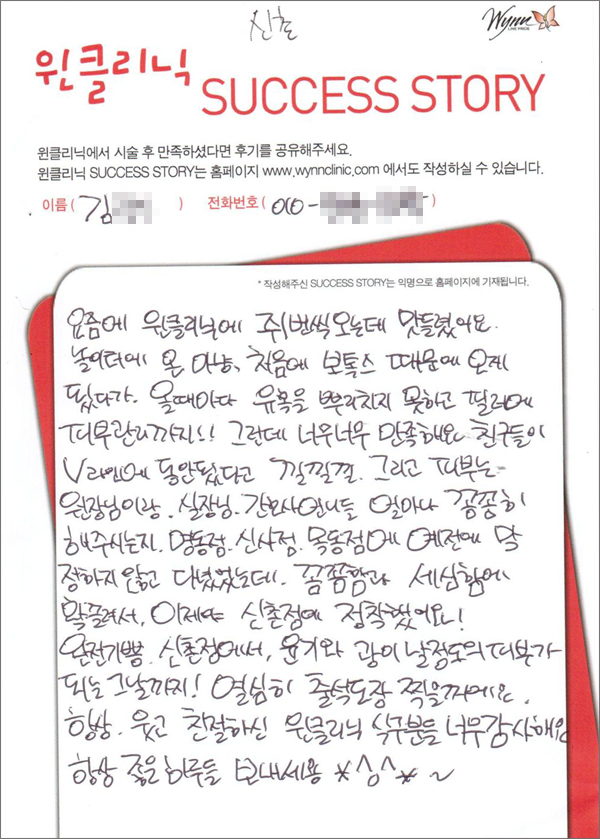 신촌
Wynn
윈클리닉
SUCCESS STORY
윈클리닉에서 시술 후 만족하셨다면 후기를 공유해주세요.
윈클리닉 SUCCESS STORY는 홈페이지 www.wynnclinic.com 에서도 작성하실 수 있습니다.
이름 ( 김 ) 전화번호 ( 010 - )
* 작성해주신 SUCCESS STORY는 익명으로 홈페이지에 기재됩니다.
요즘에 윈클리닉에 주1번씩 오는데 맛들렸어요.
놀이터에 온 마냥, 처음에 보톡스 때문에 오게
됐다가. 올때마다 유혹을 뿌리치지 못하고 필러에
피부관리까지!! 그런데 너무너무 만족해요 친구들이
V라인에 동안됐다고 낄낄낄. 그리고 피부는
원장님이랑. 실장님. 간호사언니들 얼마나 꼼꼼히
해주시는지. 명동점. 신사점. 목동점에 예전에 말
정하지 않고 다녔었는데. 꼼꼼함과 세심함에
확끌려서, 이제야 신촌점에 정착했어요!
완전기쁨. 신촌점에서, 윤기와 광이 날정도의 피부가
되는 그날까지! 열심히 출석도장 찍을꺼에요.
항상. 웃고 친절하신 윈클리닉 식구분들 너무감사해요
항상 좋은 하루들 보내세용 *^^* ~